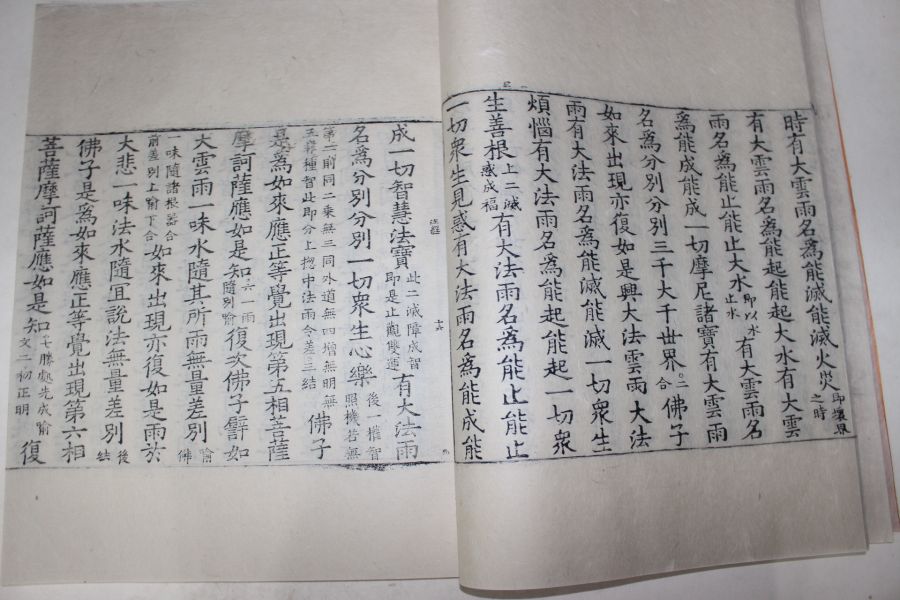 時有大雲雨名爲能滅能滅火災即壞界之時
有大雲雨名爲能起能起大水有大雲
雨名爲能止能止大水即以水止水有大雲雨名
爲能成能成一切摩尼諸寶有大雲雨
名爲分別分別三千大千世界○二合佛子
如來出現亦復如是興大法雲雨大法
雨有大法雨名爲能滅能滅一切衆生
煩惱有大法雨名爲能起能起一切衆
生善根上二滅惑成福有大法雨名爲能止能止
一切衆生見惑有大法雨名爲能成能
十六
成一切智慧法寶此二滅障成智即是止觀雙運有大法雨
名爲分別分別一切衆生心樂後一權智照機若無
第二前同二乘無三同外道無四增無明無五種智此即分上惣中法雨令差三結佛子
是爲如來應正等覺出現第五相菩薩
摩訶薩應如是知六一雨隨別喻復次佛子譬如
大雲雨一味水隨其所雨無量差別喻佛
一味隨諸根器合前差別上喻下合如來出現亦復如是雨於
大悲一味法水隨宜說法無量差別後結
佛子是爲如來應正等覺出現第六相
菩薩摩訶薩應如是知七勝處先成喻文二初正明復